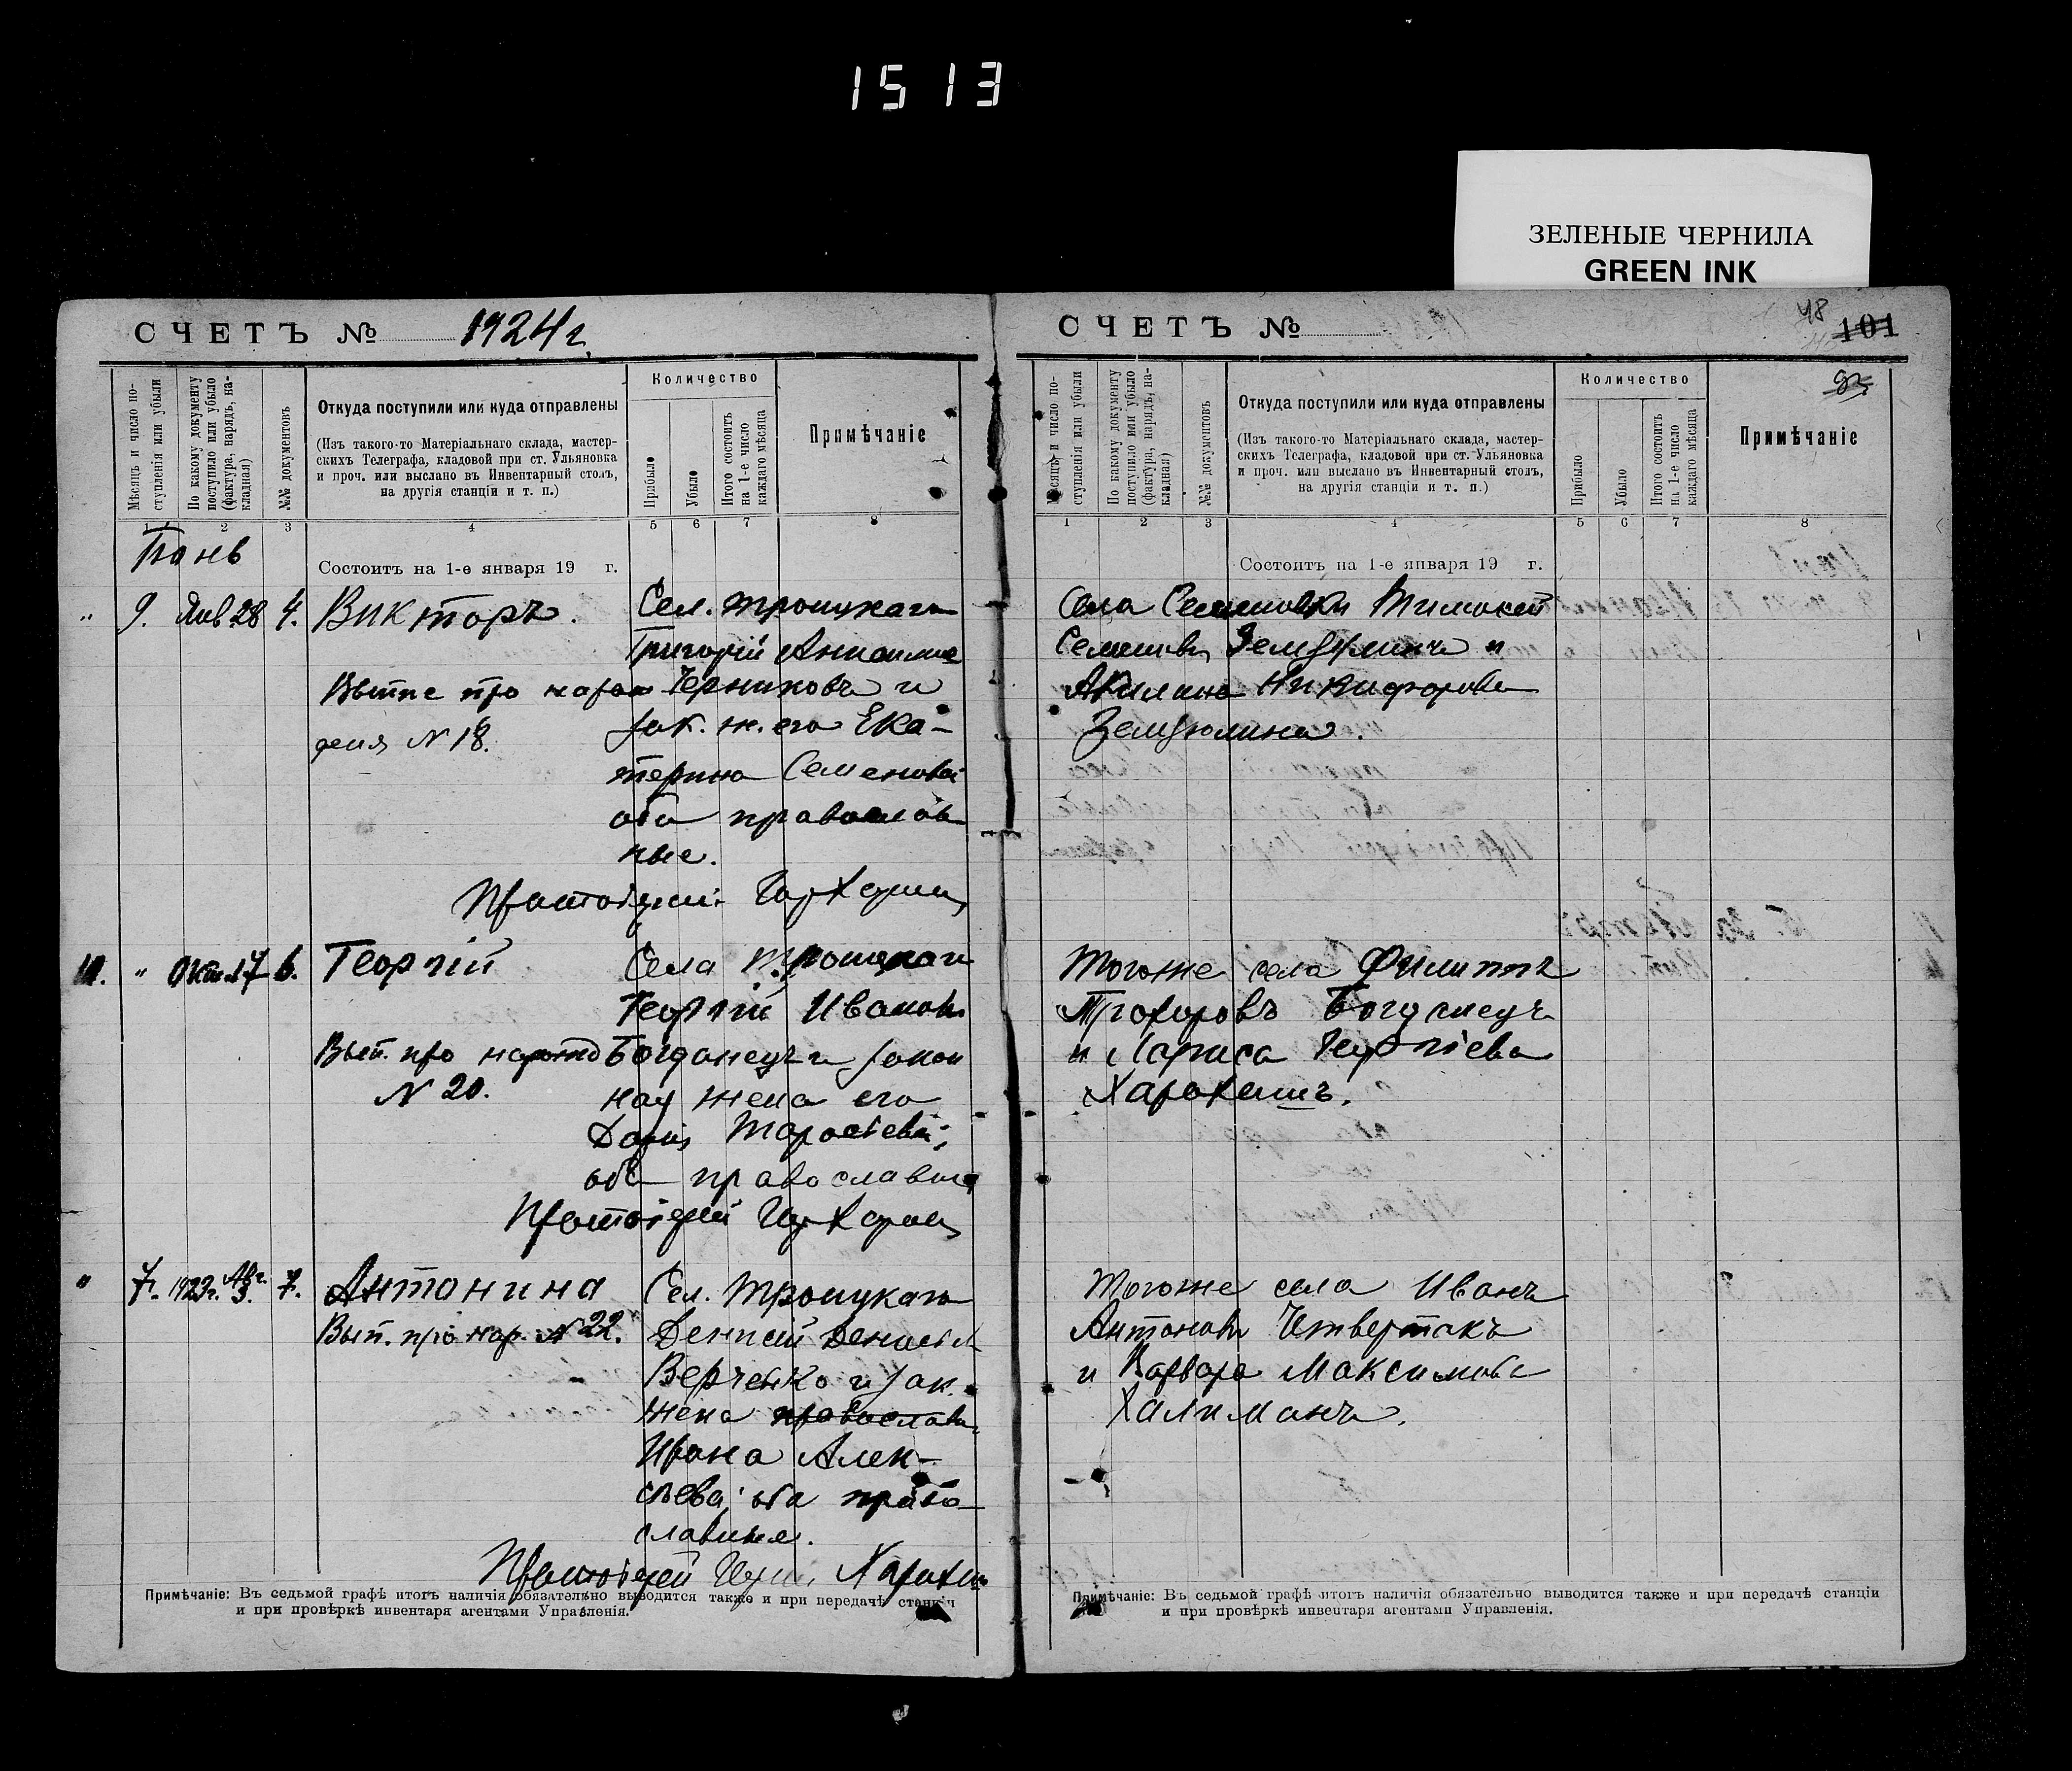 1513
ЗЕЛЕНЫЕ ЧЕРНИЛА
GREEN INK
СЧЕТЪ № 1924 г.
Мѣсяцъ и число поступленія или убыли
По какому документу поступило или убыло (фактура, нарядъ, накладная)
№№ документовъ
Откуда поступили или куда отправлены
(Изъ такого-то Матеріальнаго склада, мастер-
скихъ Телеграфа, кладовой при ст. Ульяновка
и проч. или выслано въ Инвентарный столъ,
на другія станціи и т. п.)
Количество
Прибыло
Убыло
Итого состоитъ на 1-е число каждаго мѣсяца
Примѣчаніе
1 2 3 4 5 6 7 8
Состоитъ на 1-е января 19 г.
" 9. Янв 28 4. Викторъ. Сел. Троицкаго
Григорій
Черниковъ и
N 18. зак. ж. его Ека-
терина Семенова
оба православ
ные.
Протоіерей
" 6. Георгій Села Троицкаго
Георгій Иванов
Вып. про Богданецъ и закон
N 20. ная жена его
Дарія Тарасіева;
оба православные
Протоіерей
" 7. 1923г. Авг. 3. 7. Антонина Сел. Троицкаго
Вып. про нар. N 22. Денисій
Верченко и зак.
жена православн.
Алек-
сѣева; оба право-
славные.
Протоіерей
Примѣчаніе: Въ седьмой графѣ итогъ наличія обязательно выводится также и при передачѣ станціи
и при провѣркѣ инвентаря агентами Управленія.
СЧЕТЪ №
48
101
Мѣсяцъ и число поступленія или убыли
По какому документу поступило или убыло (фактура, нарядъ, накладная)
№№ документовъ
Откуда поступили или куда отправлены
(Изъ такого-то Матеріальнаго склада, мастер-
скихъ Телеграфа, кладовой при ст. Ульяновка
и проч. или выслано въ Инвентарный столъ,
на другія станціи и т. п.)
Количество
Прибыло
Убыло
Итого состоитъ на 1-е число каждаго мѣсяца
Примѣчаніе
1 2 3 4 5 6 7 8
Состоитъ на 1-е января 19 г.
Села Семеновки Тимофей
Семеновъ и
Акилина Никифорова
Земзюлина.
Тогоже села Филиппъ
Прохоровъ Богданецъ
и Лариса Георгіева
Тогоже села Иванъ
Антоновъ Четвертакъ
и Варвара Максимова
Халиманъ.
Примѣчаніе: Въ седьмой графѣ итогъ наличія обязательно выводится также и при передачѣ станціи
и при провѣркѣ инвентаря агентами Управленія.